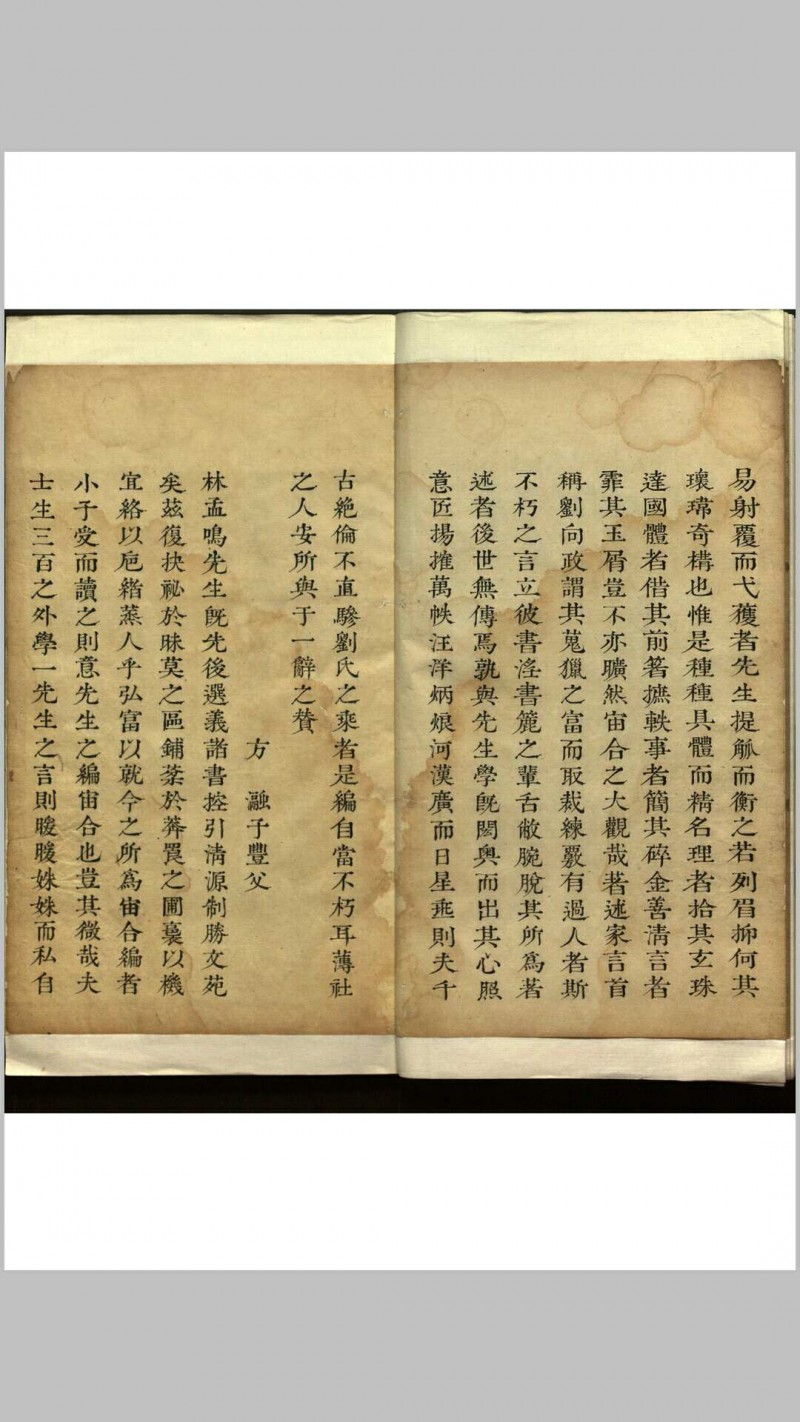 易射覆而弋獲者先生提觚而衡之若列眉抑何其
瓌琦奇構也惟是種種具體而精名理者拾其玄珠
達國體者借其前箸摭軼事者簡其碎金善淸言者
霏其玉屑豈不亦曠然宙合之大觀哉著述家言首
稱劉向政謂其蒐獵之富而取裁練覈有過人者斯
不朽之言立彼書淫書簏之輩舌敝腕脫其所爲若
述者後世無傳焉孰與先生學旣閎奧而出其心照
意匠揚搉萬帙汪洋炳烺河漢廣而日星垂則夫千
古絕倫不直驂劉氏之乘者是編自當不朽耳薄社
之人安所與于一辭之贊
方融子豐父
林孟鳴先生旣先後選義諧書控引淸源制勝文苑
矣玆復抉祕於昧莫之區鋪棻於莽罠之圃裏以機
宜絡以巵緖蒸人乎弘富以就今之所爲宙合編者
小子受而讀之則意先生之編宙合也豈其微哉夫
士生三百之外學一先生之言則暖暖姝姝而私自